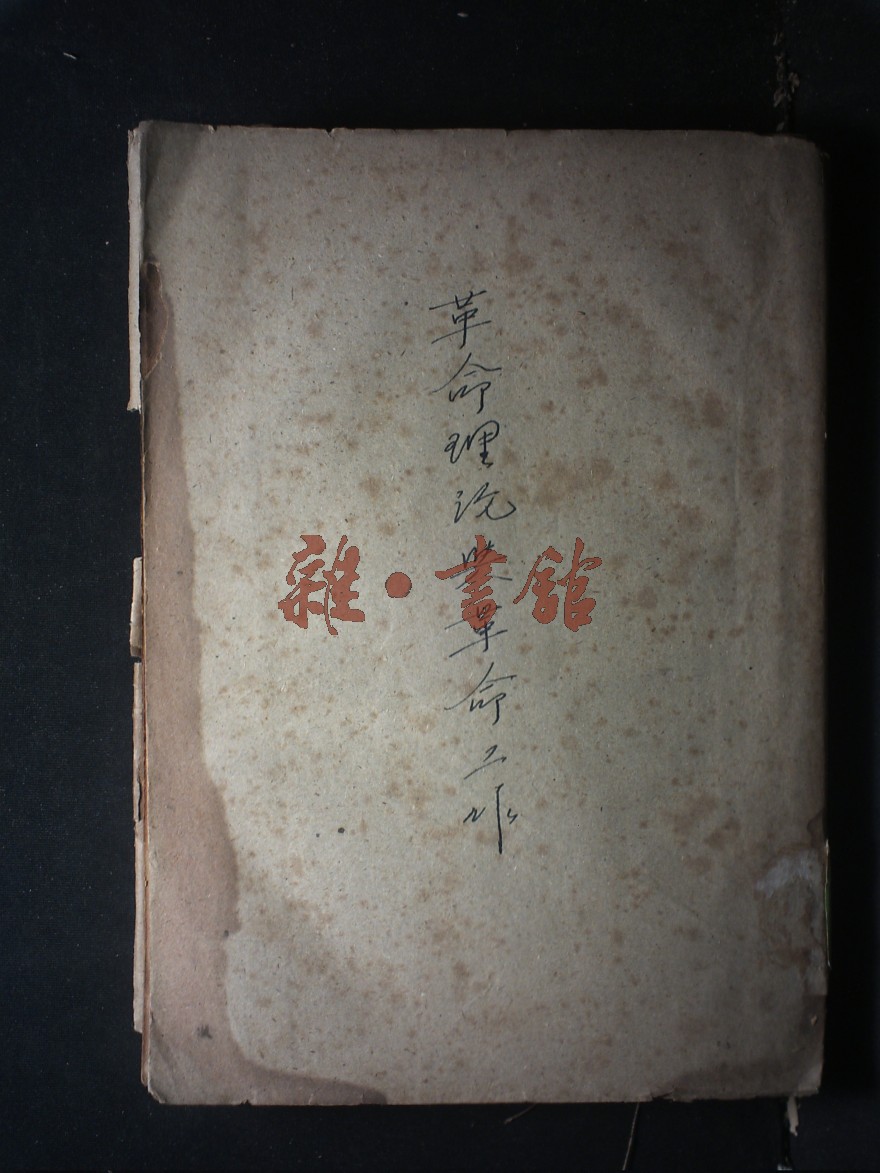 革命理论與革命工作
雜·書舘